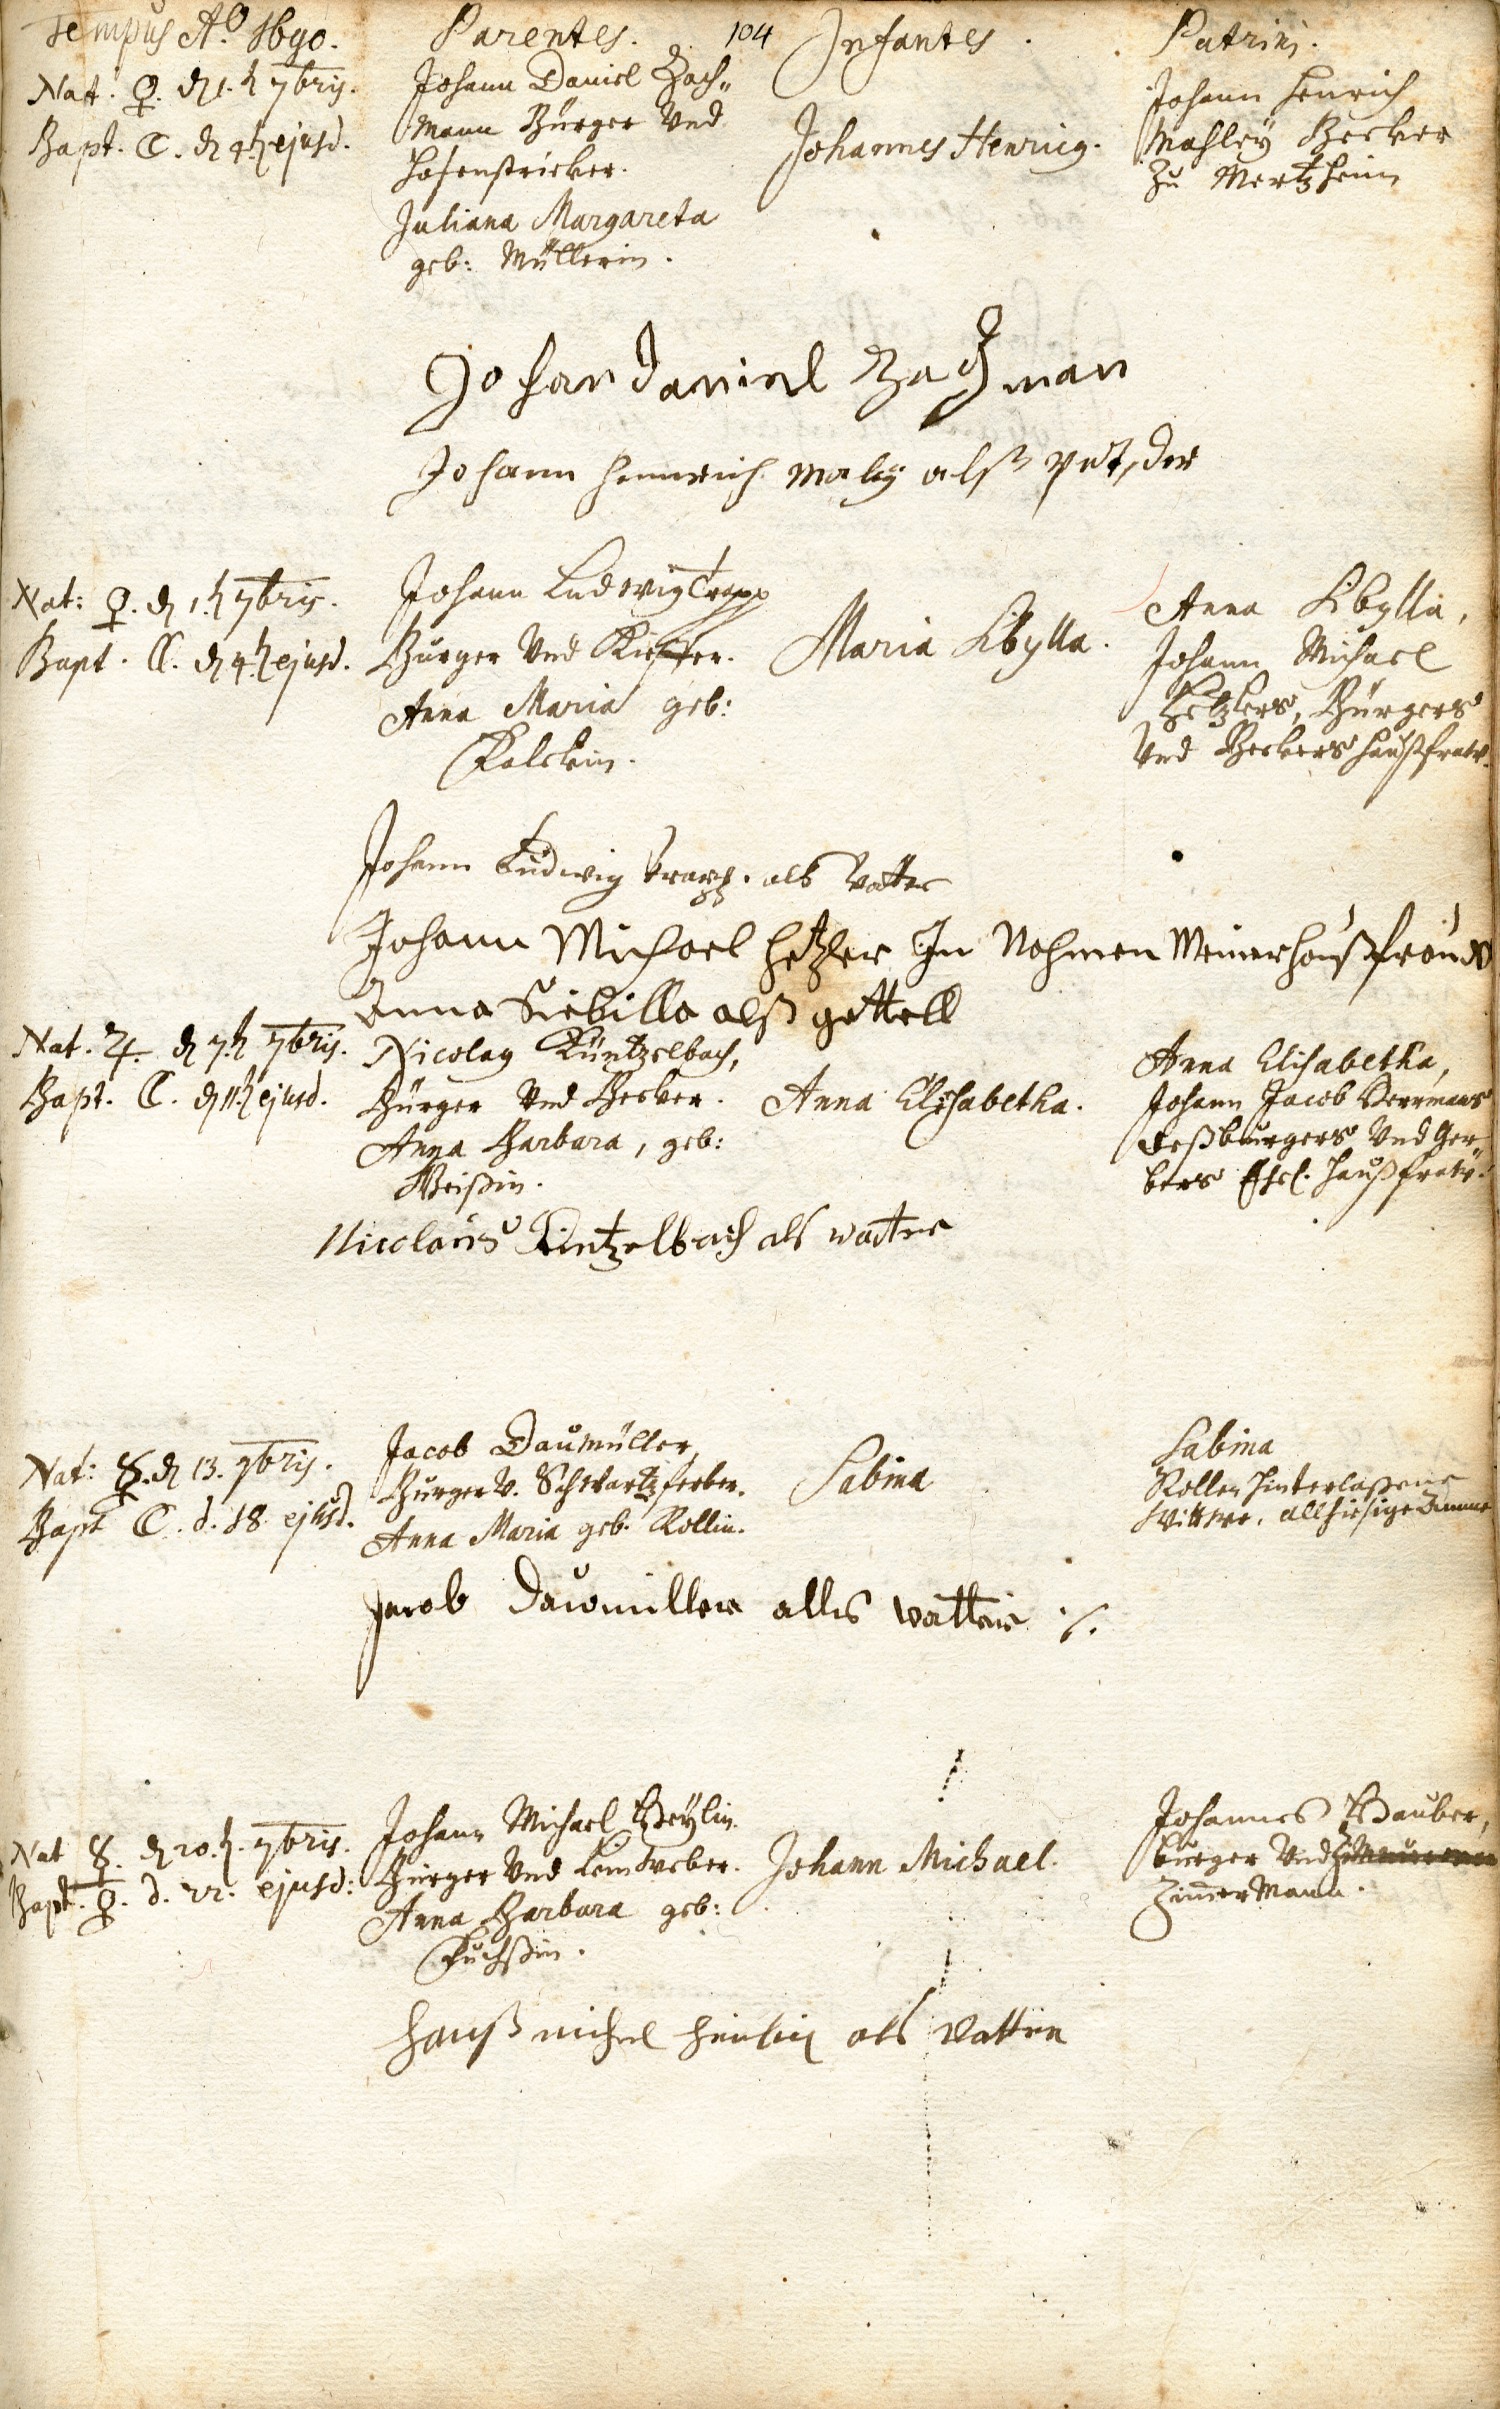 Tempus Aõ. 1690.
Parentes.
104
Infantes.
Patrini.
Nat. ♀. d. 1. 7bris.
Bapt. ☾. d. 4. ejusd.
Johann Daniel Bach-
mann Bürger Und
Hosenstricker.
Juliana Margareta
geb: Müllerin.
Johannes Henricus.
Johann Henrich
Mahleÿ Becker
Zu Mertzheim
Johan Daniel Bachman
Johann Henrich maleÿ alß
Nat: ♀. d. 1. 7bris.
Bapt. ☾. d. 4. ejusd.
Johann Ludwig Trapp
Bürger Und Kieffer.
Anna Maria geb:
Falckin.
Maria Sibylla.
Anna Sibylla,
Johann Michael
Hetzlers, Bürgers
Und Beckers haußfraw.
Johann Ludwig Trapp. als Vatter
Johann Michael Hetzler In Nahmen Meiner haußfrau
Anna Siebilla alß gettell
Nat. ♃. d. 7. 7bris.
Bapt. ☾. d. 11. ejusd.
Nicolaus Küntzelbach,
Bürger Und Becker.
Anna Barbara, geb:
Weißin.
Anna Elisabetha.
Anna Elisabetha,
Johann Jacob
Bürgers Und Ger-
bers Ehel. haußfraw.
Nicolaus Kintzelbach als vatter
Nat: ☿. d. 13. 7bris.
Bapt ☾. d. 18. ejusd.
Jacob Daumüller,
Bürger V. Schwartzferber.
Anna Maria geb. Kollin.
Sabina
Sabina
Kollen hinterlaßene
Wittwe, allhiesige Amme
Jacob Daumiller alls vatter
Nat ☿. d. 20. 7bris.
Bapt. ♀. d. 22. ejusd:
Johann Michael Beylin.
Bürger Und Leinweber.
Anna Barbara geb:
Fuchßin.
Johann Michael.
Johannes Bauber,
bürger Und
Zimmermann.
Hanß michel als Vatter